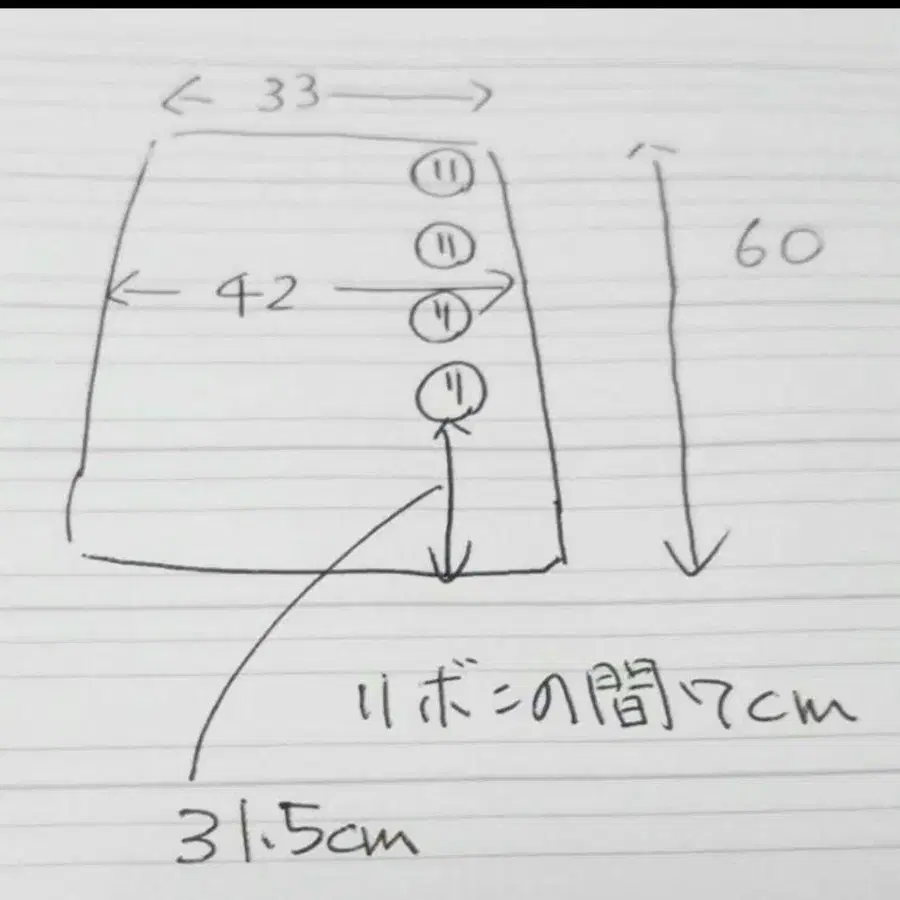 33
リ
リ
42
リ
リ
60
リボンの間7cm
31.5cm